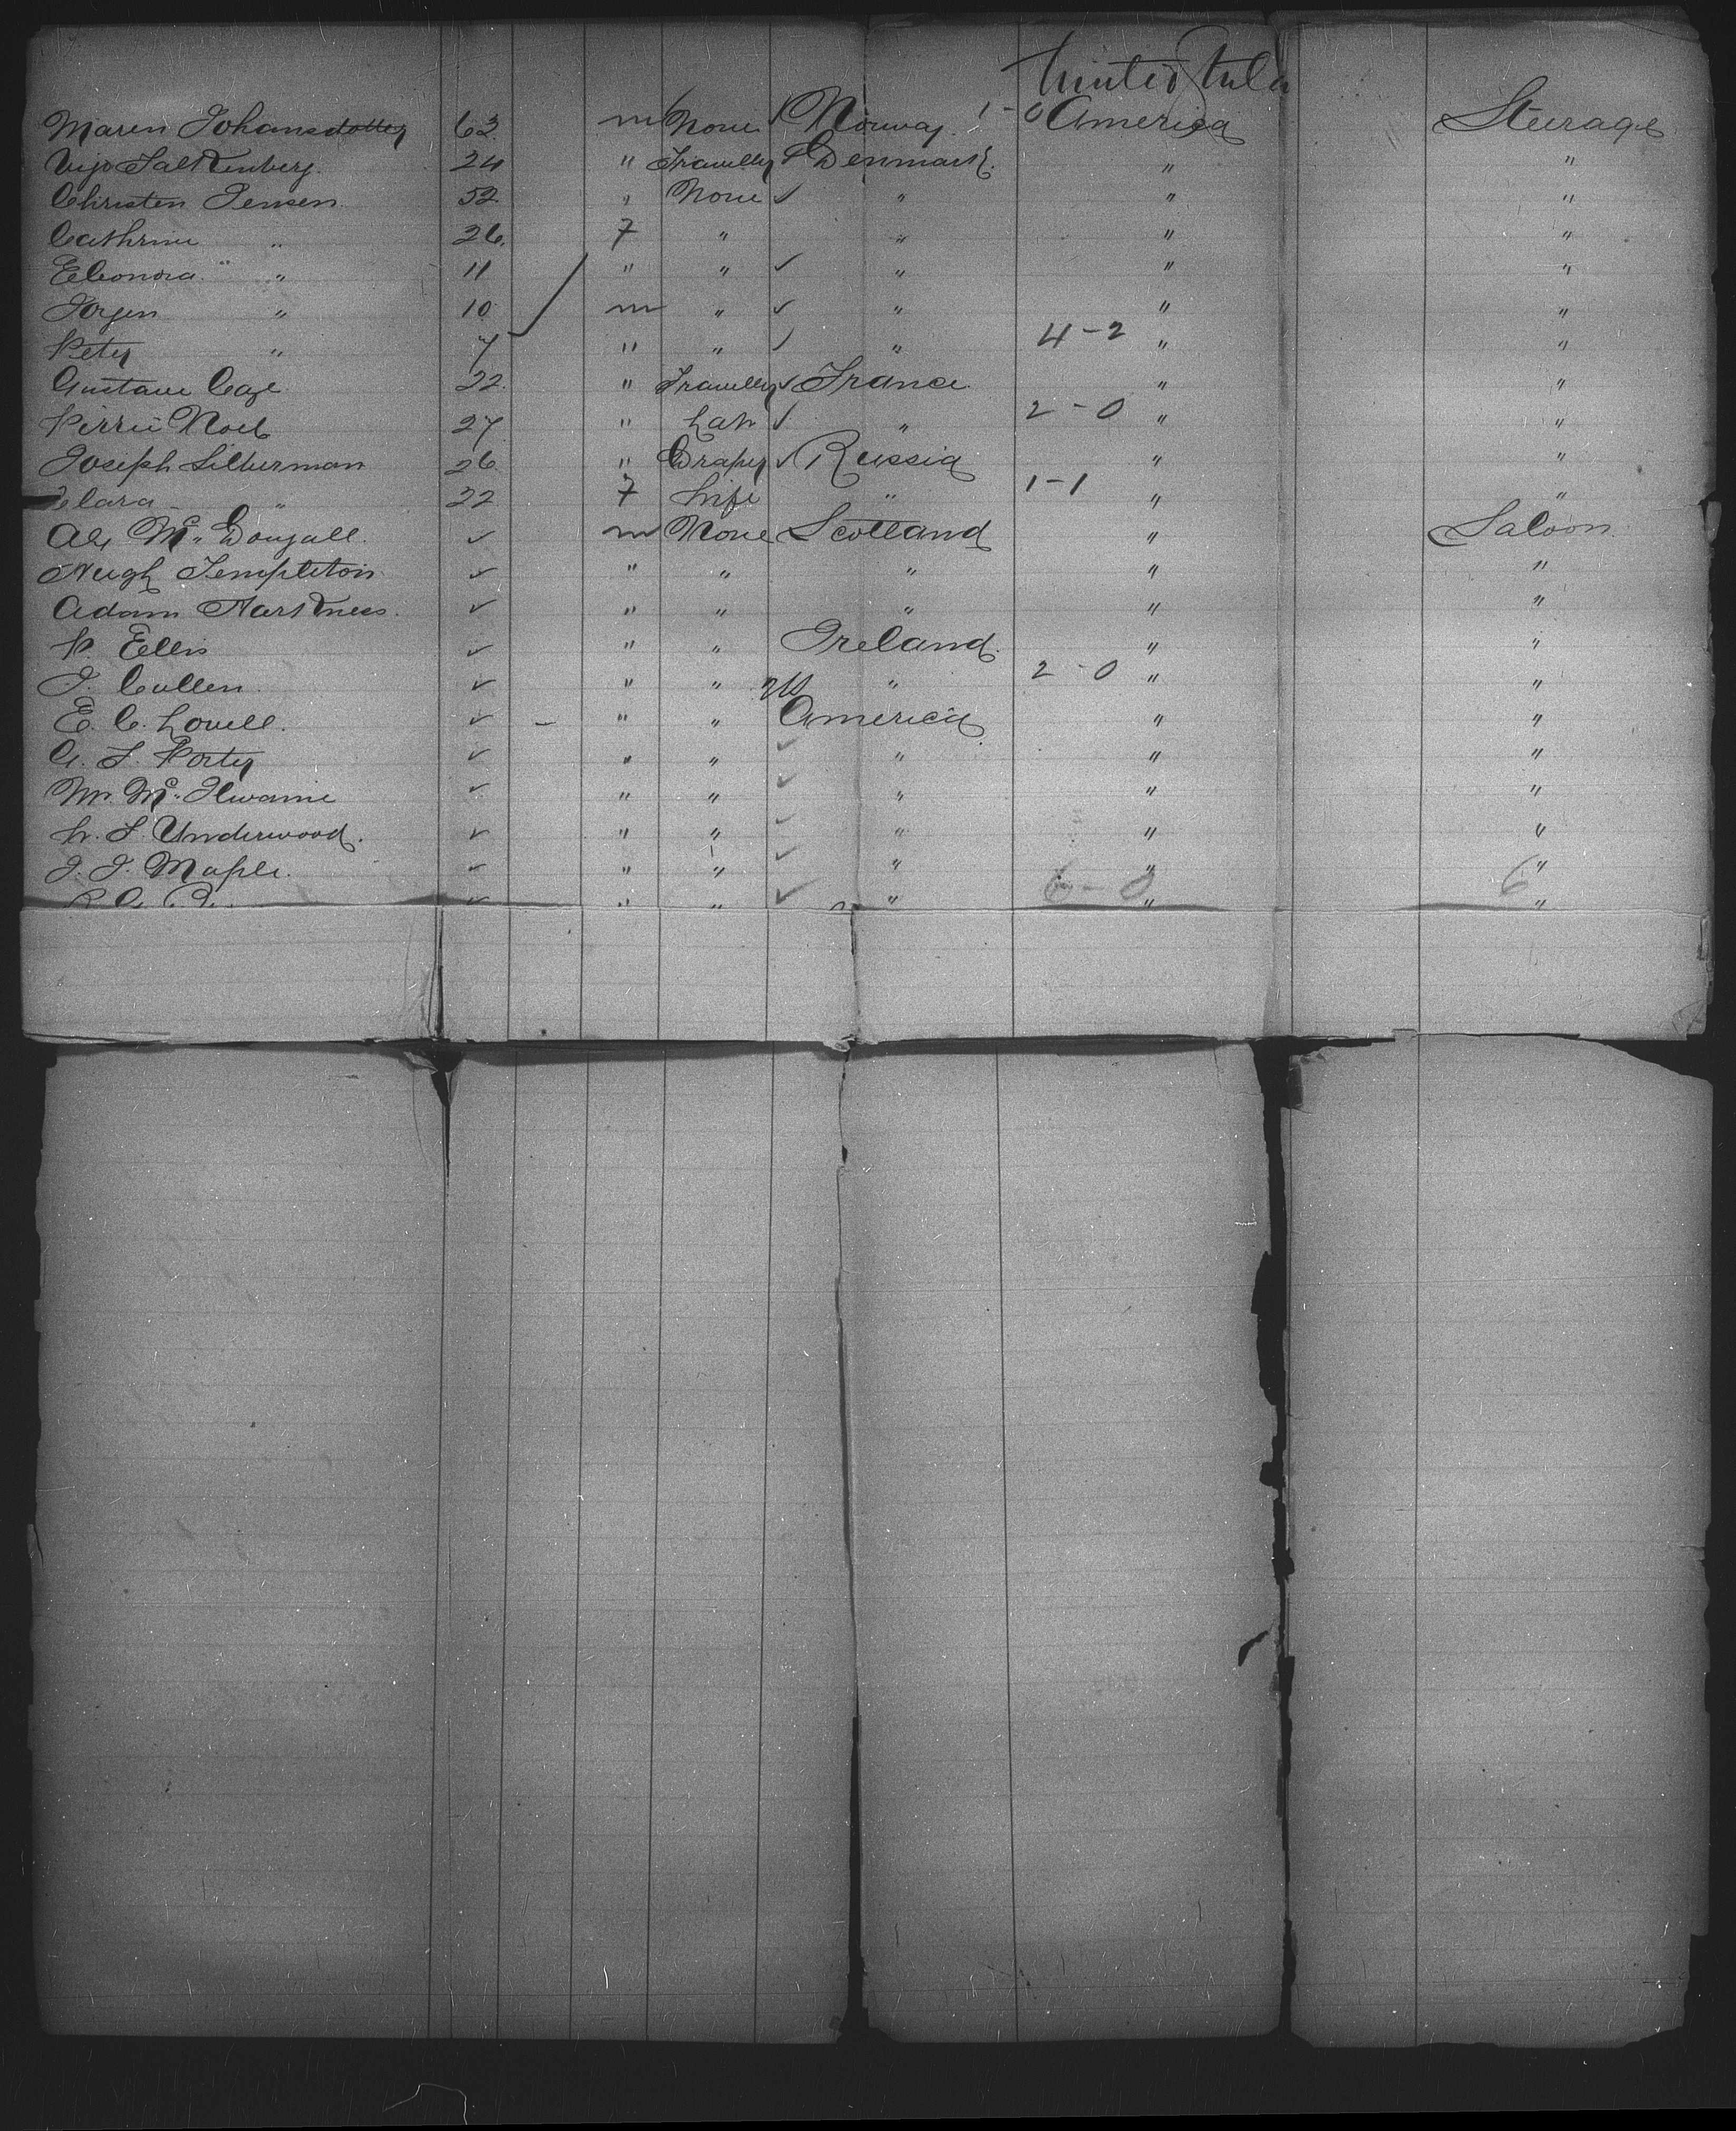 United
Maren Johansdotter 63 m None ✓ Norway. 1-0 America Steerage
24 " Traveller ✓ Denmark. " "
Christen Jensen 52 " None ✓ " " "
Cathrine " 26. F " " " "
Eleonora " 11 " " ✓ " " "
Jorgen " 10 m " ✓ " " "
Peter " 7 " " ✓ " 4-2 " "
Gustave Caze 22. " Traveller ✓ France " "
Pierre Noel 27 " ✓ " 2-0 " "
Joseph Silberman 26 " Draper ✓ Russia " "
Clara " 22 F Wife " 1-1 " "
Alex McDougall. ✓ m None Scotland " Saloon
Hugh Templeton ✓ " " " " "
Adam Harkness. ✓ " " " " "
P. Ellis ✓ " " Ireland. " "
J. Cullen ✓ " " " 2-0 " "
E. C. Lovell. ✓ - " " US America " "
G. F. Porter ✓ " " ✓ " " "
Wm McIlwaine ✓ " " ✓ " " "
W. S. Underwood. ✓ " " ✓ " " "
J. J. Maple. ✓ " " ✓ " " "
✓ " " ✓ " 6-0 " 6 "